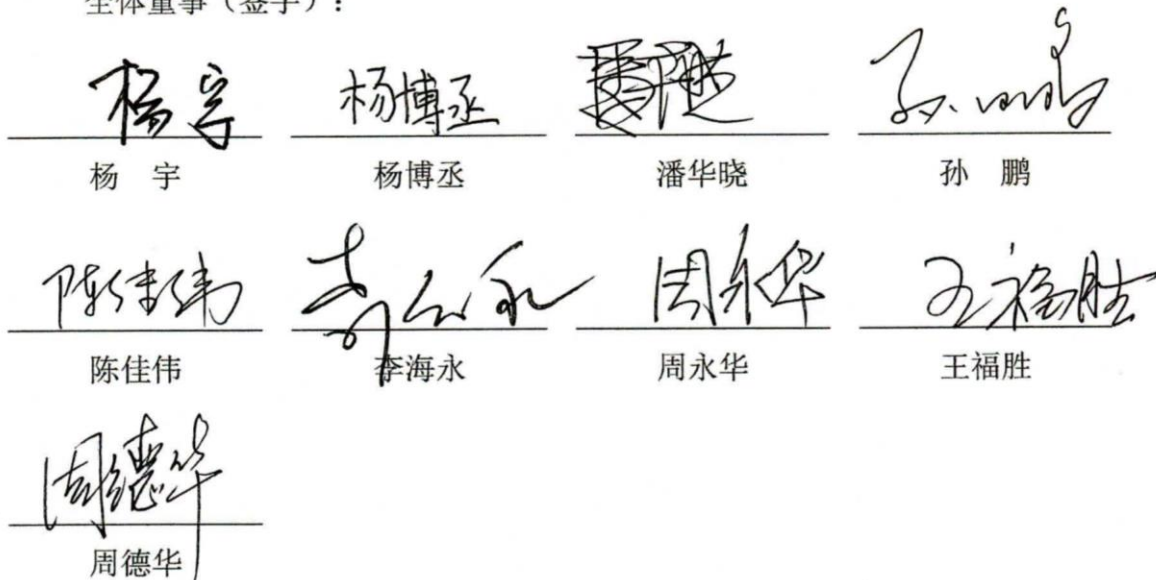 全体董事（签字）：
杨宇 杨博丞
杨 宇 杨博丞 潘华晓 孙 鹏
陈佳伟 周永华 王福胜
陈佳伟 李海永 周永华 王福胜
周德华
周德华